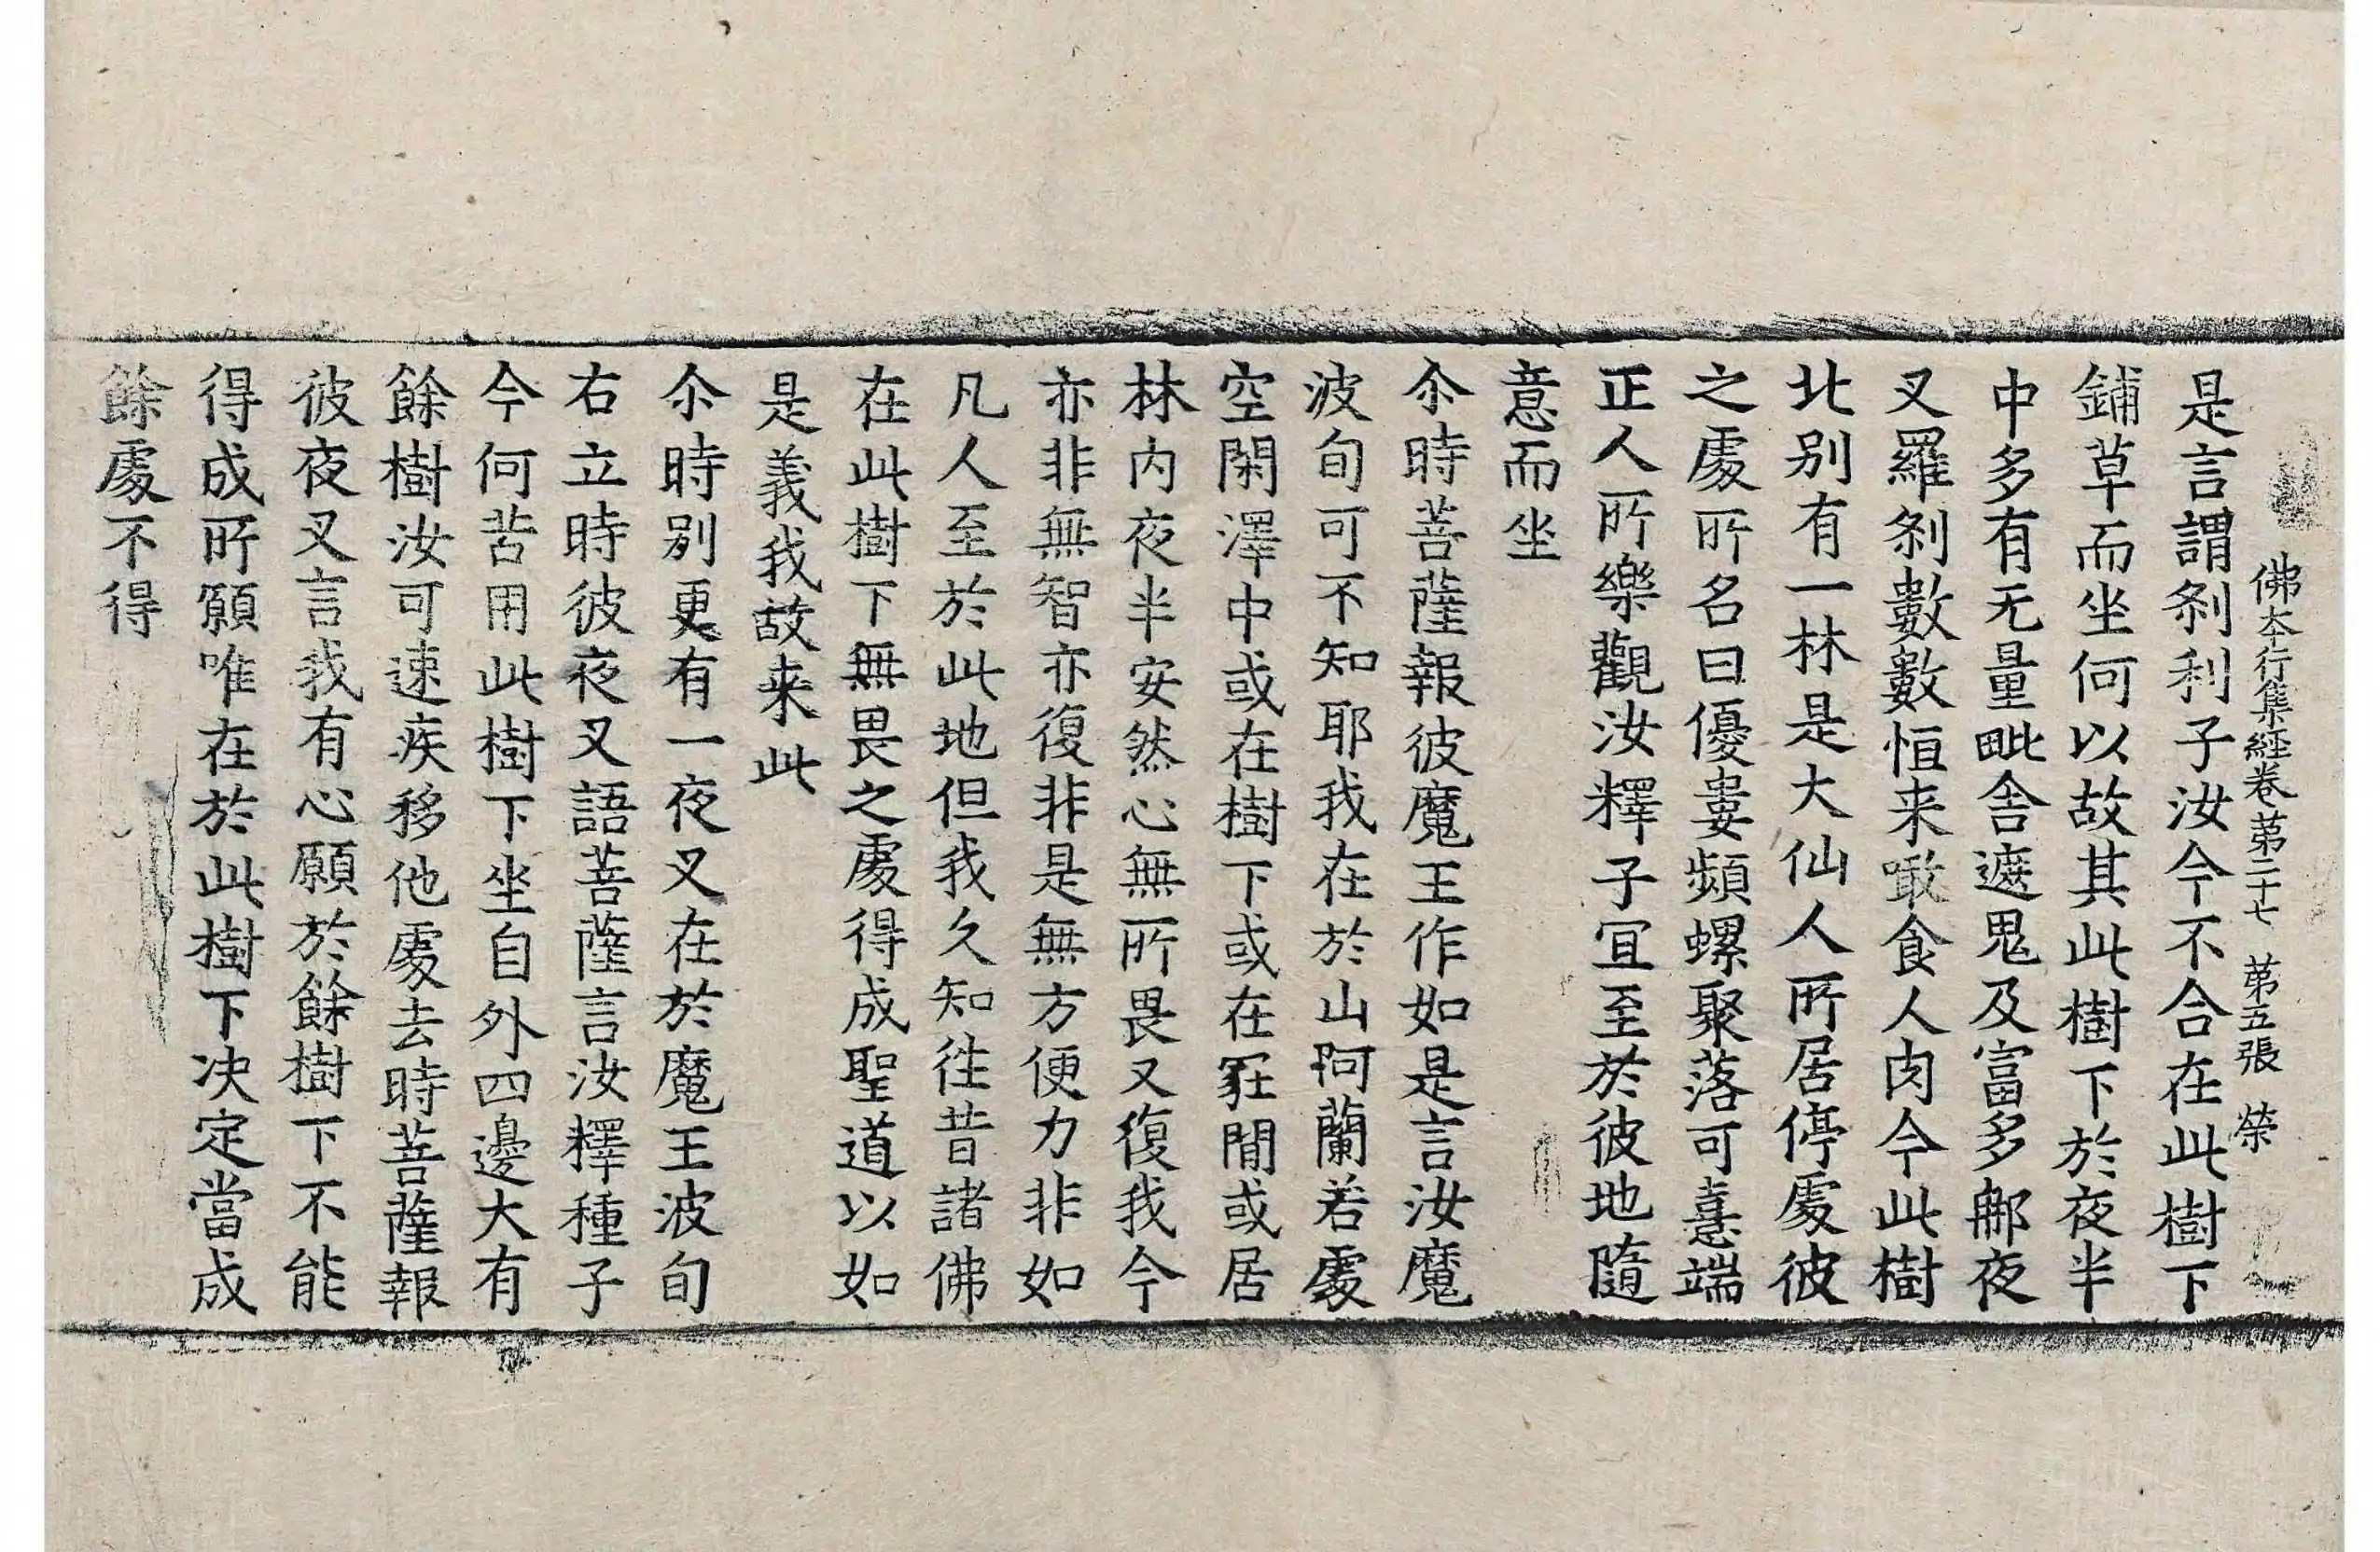 佛夲行集經卷苐二十七 苐五張 榮
是言謂刹利子汝今不合在此樹下
鋪草而坐何以故其此樹下於夜半
中多有无量毗舎遮鬼及富多𨚗夜
叉羅刹數數恒来噉食人肉今此樹
北别有一林是大仙人所居停處彼
之處所名曰優婁頻螺聚落可憙端
正人所樂觀汝釋子宜至於彼地隨
意而坐
尒時菩薩報彼魔王作如是言汝魔
波旬可不知耶我在於山阿蘭若處
空閑澤中或在樹下或在冢間或居
林内夜半安然心無所畏又復我今
亦非無智亦復非是無方便力非如
凡人至於此地但我久知往昔諸佛
在此樹下無畏之處得成聖道以如
是義我故来此
尒時别更有一夜叉在於魔王波旬
右立時彼夜叉語菩薩言汝釋種子
今何苦用此樹下坐自外四邊大有
餘樹汝可速疾移他處去時菩薩報
彼夜叉言我有心願於餘樹下不能
得成所願唯在於此樹下决定當成
餘處不得